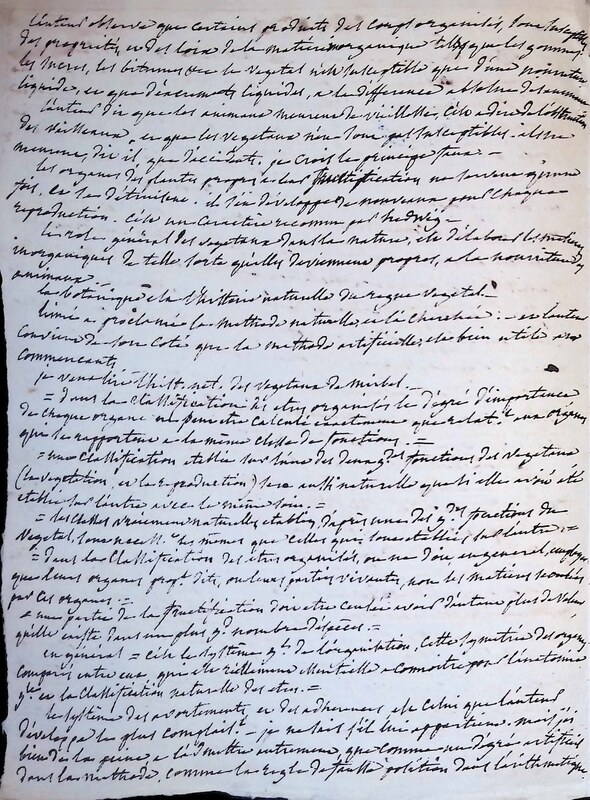 l'auteur observe que certains produits des corps organisés, sont susceptibles
des propriétés et des loix de la matière inorganique telles que les gommes,
les sucres, les bitumes &c le vegetal n'est susceptible que d'une nourriture
liquide, et que d'excrements liquides, a la difference absolue des animaux
l'auteur dit que les animaux meurent de vieillesse, c'est a dire de l'obstruction
des vaisseaux, et que les vegetaux n'en sont pas susceptibles. ils ne
meurent, dit il, que d'accidents. je crois le principe faux. —
les organes des plantes propres a la fructification ne servent qu'une
fois, et se détruisent. il s'en développe de nouveaux pour chaque
reproduction. c'est un caractère reconnu par hedwig —
le role général des vegetaux dans la nature, est d'élaborer les matières
inorganiques de telle sorte qu'elles deviennent propres, a la nourriture des
animaux. —
la botanique est l'histoire naturelle du regne vegetal. —
linné a proclamé la methode naturelle, et l'a cherchée. — et l'auteur
convient de son coté que la methode artificielle, est bien utile aux
commençants
je viens lire l'hist. nat. des vegetaux de mirbel. —
= dans la classification des etres organisés le dégré d'importance
de chaque organe ne peut etre calculé exactement que relat.t aux organes
qui se rapportent a la même classe de fonctions. =
= une classification etablie sur l'une des deux g.des fonctions des vegetaux
(la vegetation, et la reproduction) sera aussi naturelle que si elle avoit été
etablie sur l'autre avec le même soin. =
= les classes vraiement naturelles, etablies, d'après une des g.des fonctions du
vegetal, sont necess.t les memes que celles qui sont etablies sur l'autre. =
= dans la classification des etres organisés, on ne doit en general, employer
que leurs organes prop.t dits, ou leurs parties vivantes, non les matieres secretées
par ces organes. =
= une partie de la fructification doit etre censée avoir d'autant plus de valeur
qu'elle existe dans un plus g.d nombre d'especes. =
en général = c'est le système g.al de l'organisation, cette symétrie des organes
comparés entre eux, qui est réellement essentielle a connoitre pour l'anatomie
g.le et la classification naturelle des etres. =
le système des avortements, et des adherences, est celui que l'auteur
développe le plus complait.t — je ne sais s'il lui appartient. mais j'ai
bien de la peine, a l'admettre autrement, que comme un dégré artificiel
dans la methode, comme la regle de fausse position dans l'arithmetique.